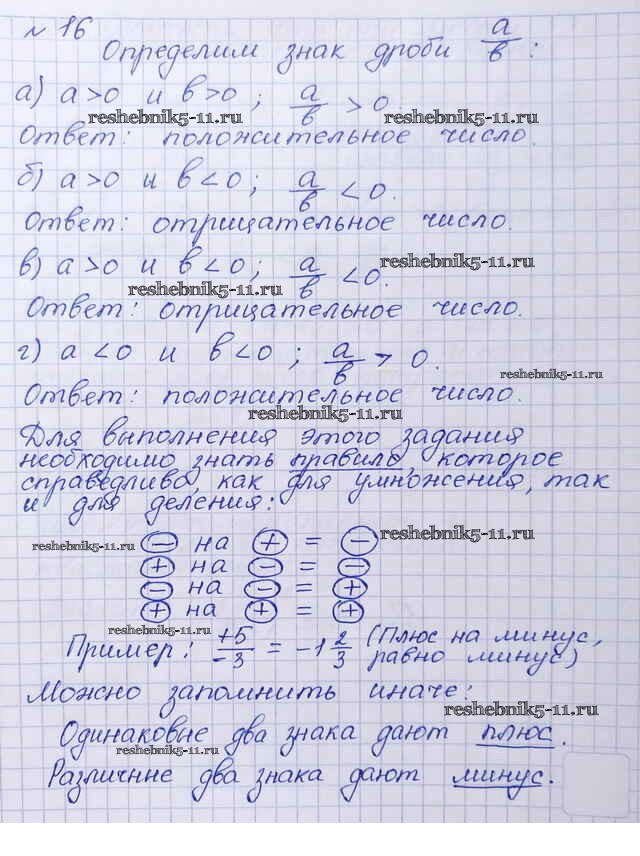 № 16
Определим знак дроби a/в :
а) a>0 и в>0 ; a/в > 0.
reshebnik5-11.ru reshebnik5-11.ru
Ответ: положительное число.
б) a>0 и в<0; a/в < 0.
Ответ: отрицательное число.
в) a>0 и в<0; a/в < 0.
reshebnik5-11.ru
reshebnik5-11.ru
Ответ: отрицательное число.
г) a<0 и в<0 ; a/в > 0.
reshebnik5-11.ru
Ответ: положительное число.
reshebnik5-11.ru
Для выполнения этого задания
необходимо знать правило, которое
справедливо как для умножения, так
и для деления:
− на + = −
reshebnik5-11.ru reshebnik5-11.ru
+ на − = −
− на − = +
+ на + = +
reshebnik5-11.ru
Пример: +5/−3 = −1 2/3 (Плюс на минус,
равно минус)
Можно запомнить иначе:
reshebnik5-11.ru
Одинаковые два знака дают плюс.
reshebnik5-11.ru
Различные два знака дают минус.